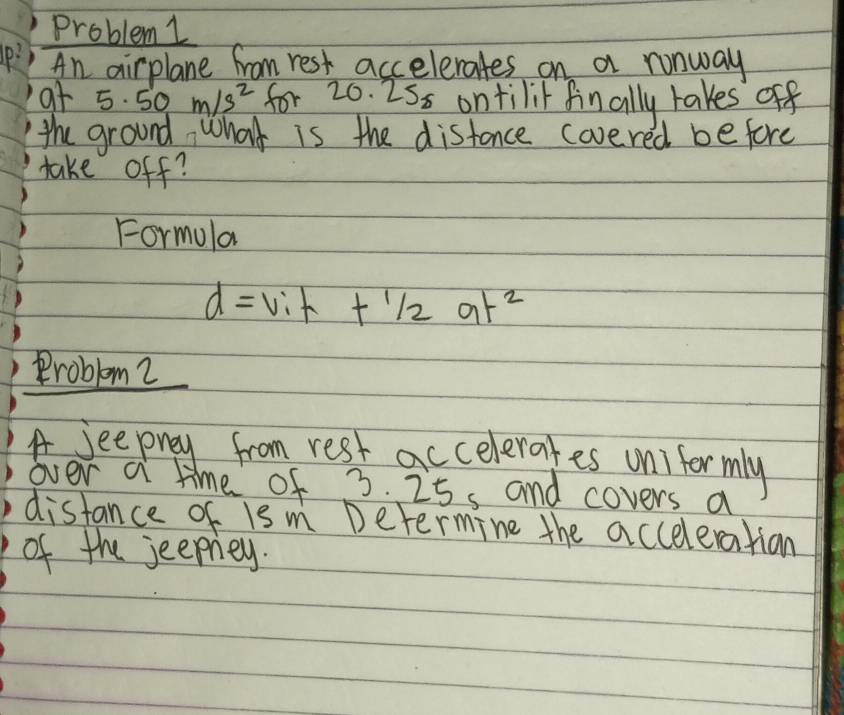 Problem 1
An airplane from rest accelerates on a runway
at 5.50 m/s² for 20.25s ontilit finally takes off
the ground, what is the distance covered before
take off?
Formula
d = vit + 1/2 at²
Problem 2
A jeepney from rest accelerates uniformly
over a time of 3.25s and covers a
distance of 15m Determine the acceleration
of the jeepney.